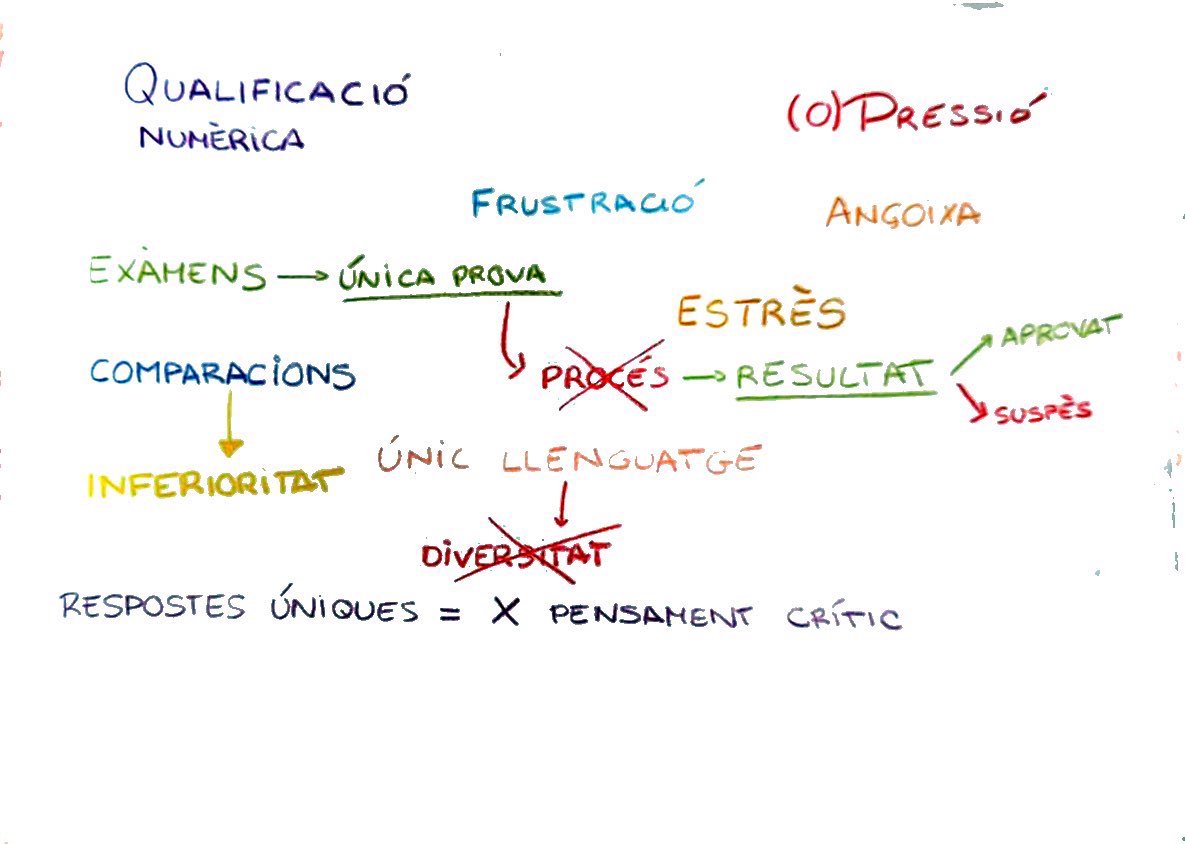 QUALIFICACIÓ
NUMÈRICA
(O)PRESSIÓ
FRUSTRACIÓ
ANGOIXA
EXÀMENS → ÚNICA PROVA
ESTRÈS
APROVAT
COMPARACIONS
PROCÉS → RESULTAT
SUSPÈS
ÚNIC LLENGUATGE
INFERIORITAT
DIVERSITAT
RESPOSTES ÚNIQUES = X PENSAMENT CRÍTIC